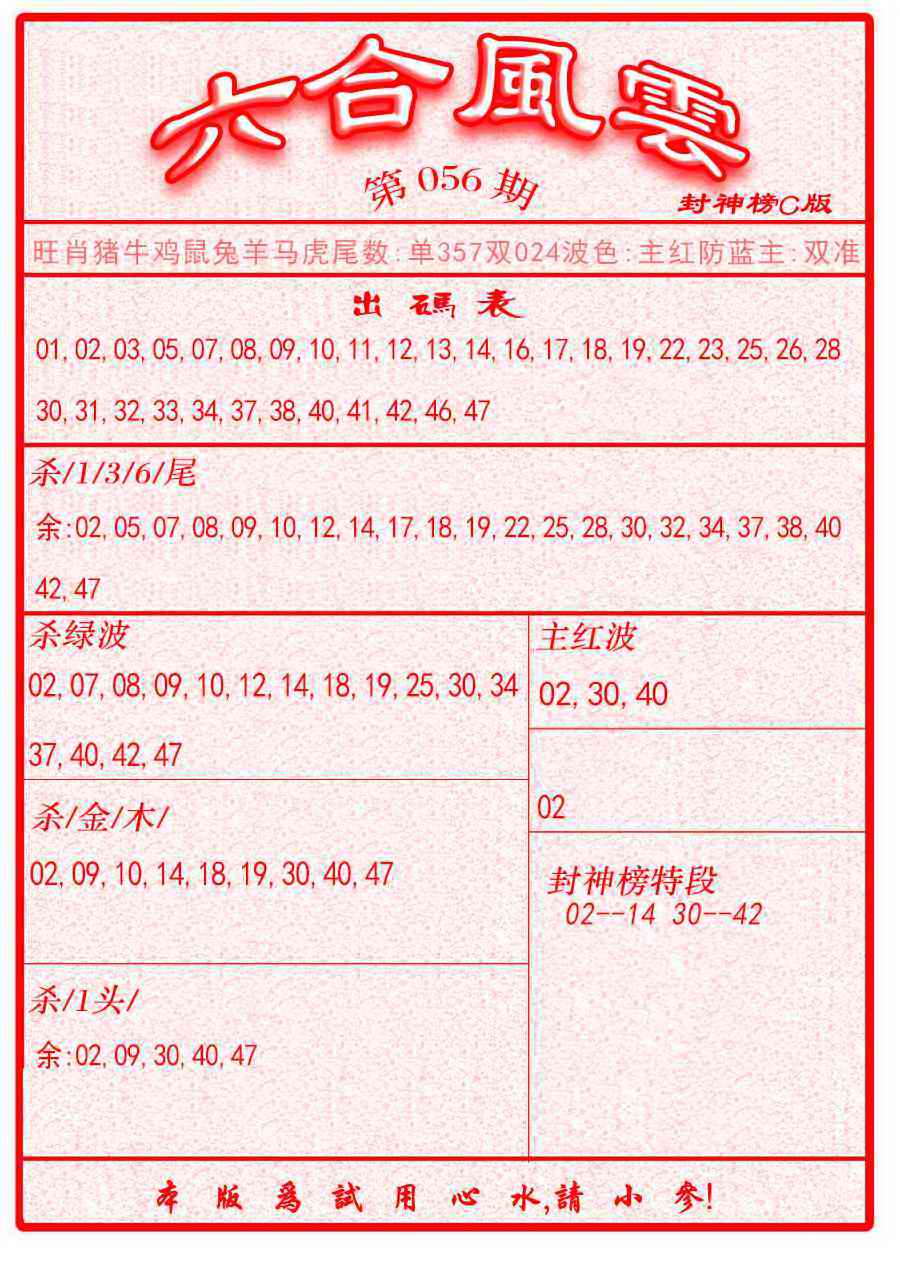 六合風雲
第056期
封神榜C版
旺肖猪牛鸡鼠兔羊马虎尾数:单357双024波色:主红防蓝主:双准
出碼表
01,02,03,05,07,08,09,10,11,12,13,14,16,17,18,19,22,23,25,26,28
30,31,32,33,34,37,38,40,41,42,46,47
杀/1/3/6/尾
余:02,05,07,08,09,10,12,14,17,18,19,22,25,28,30,32,34,37,38,40
42,47
杀绿波
02,07,08,09,10,12,14,18,19,25,30,34
37,40,42,47
主红波
02,30,40
02
杀/金/木/
02,09,10,14,18,19,30,40,47
封神榜特段
02--14 30--42
杀/1头/
余:02,09,30,40,47
本版爲試用心水,請小參!